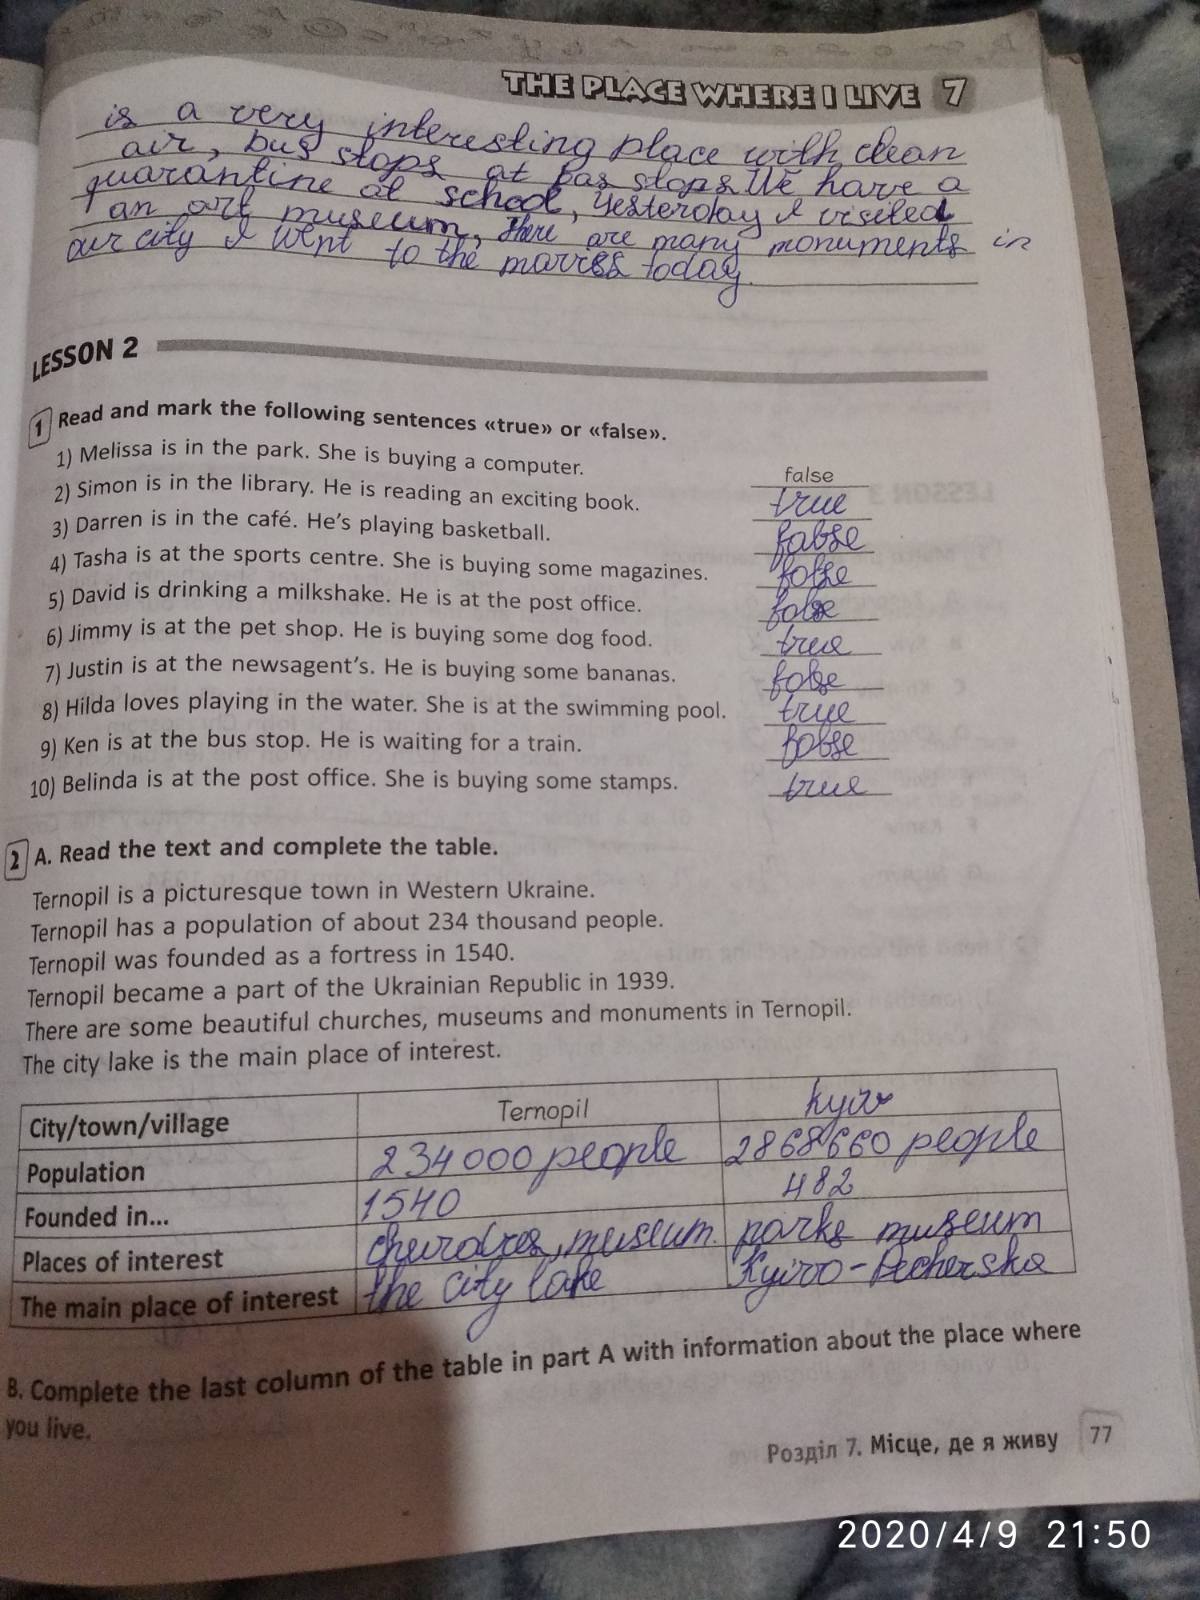 THE PLACE WHERE I LIVE 7
is a very interesting place with clean
air, bus stops at bas stops. We have a
quarantine at school, Yesterday I visited
an art museum, there are many monuments in
our city I went to the today.
LESSON 2
1 Read and mark the following sentences «true» or «false».
1) Melissa is in the park. She is buying a computer. false
2) Simon is in the library. He is reading an exciting book. true
3) Darren is in the café. He's playing basketball. false
4) Tasha is at the sports centre. She is buying some magazines. false
5) David is drinking a milkshake. He is at the post office. false
6) Jimmy is at the pet shop. He is buying some dog food. true
7) Justin is at the newsagent's. He is buying some bananas. false
8) Hilda loves playing in the water. She is at the swimming pool. true
9) Ken is at the bus stop. He is waiting for a train. false
10) Belinda is at the post office. She is buying some stamps. true
2 A. Read the text and complete the table.
Ternopil is a picturesque town in Western Ukraine.
Ternopil has a population of about 234 thousand people.
Ternopil was founded as a fortress in 1540.
Ternopil became a part of the Ukrainian Republic in 1939.
There are some beautiful churches, museums and monuments in Ternopil.
The city lake is the main place of interest.
City/town/village Ternopil Kyiv
Population 234 000 people 2868660 people
Founded in... 1540 482
Places of interest churches, museum parks museum
The main place of interest the city lake Kyivo-Pecherska
B. Complete the last column of the table in part A with information about the place where
you live.
Розділ 7. Місце, де я живу 77
2020/4/9 21:50